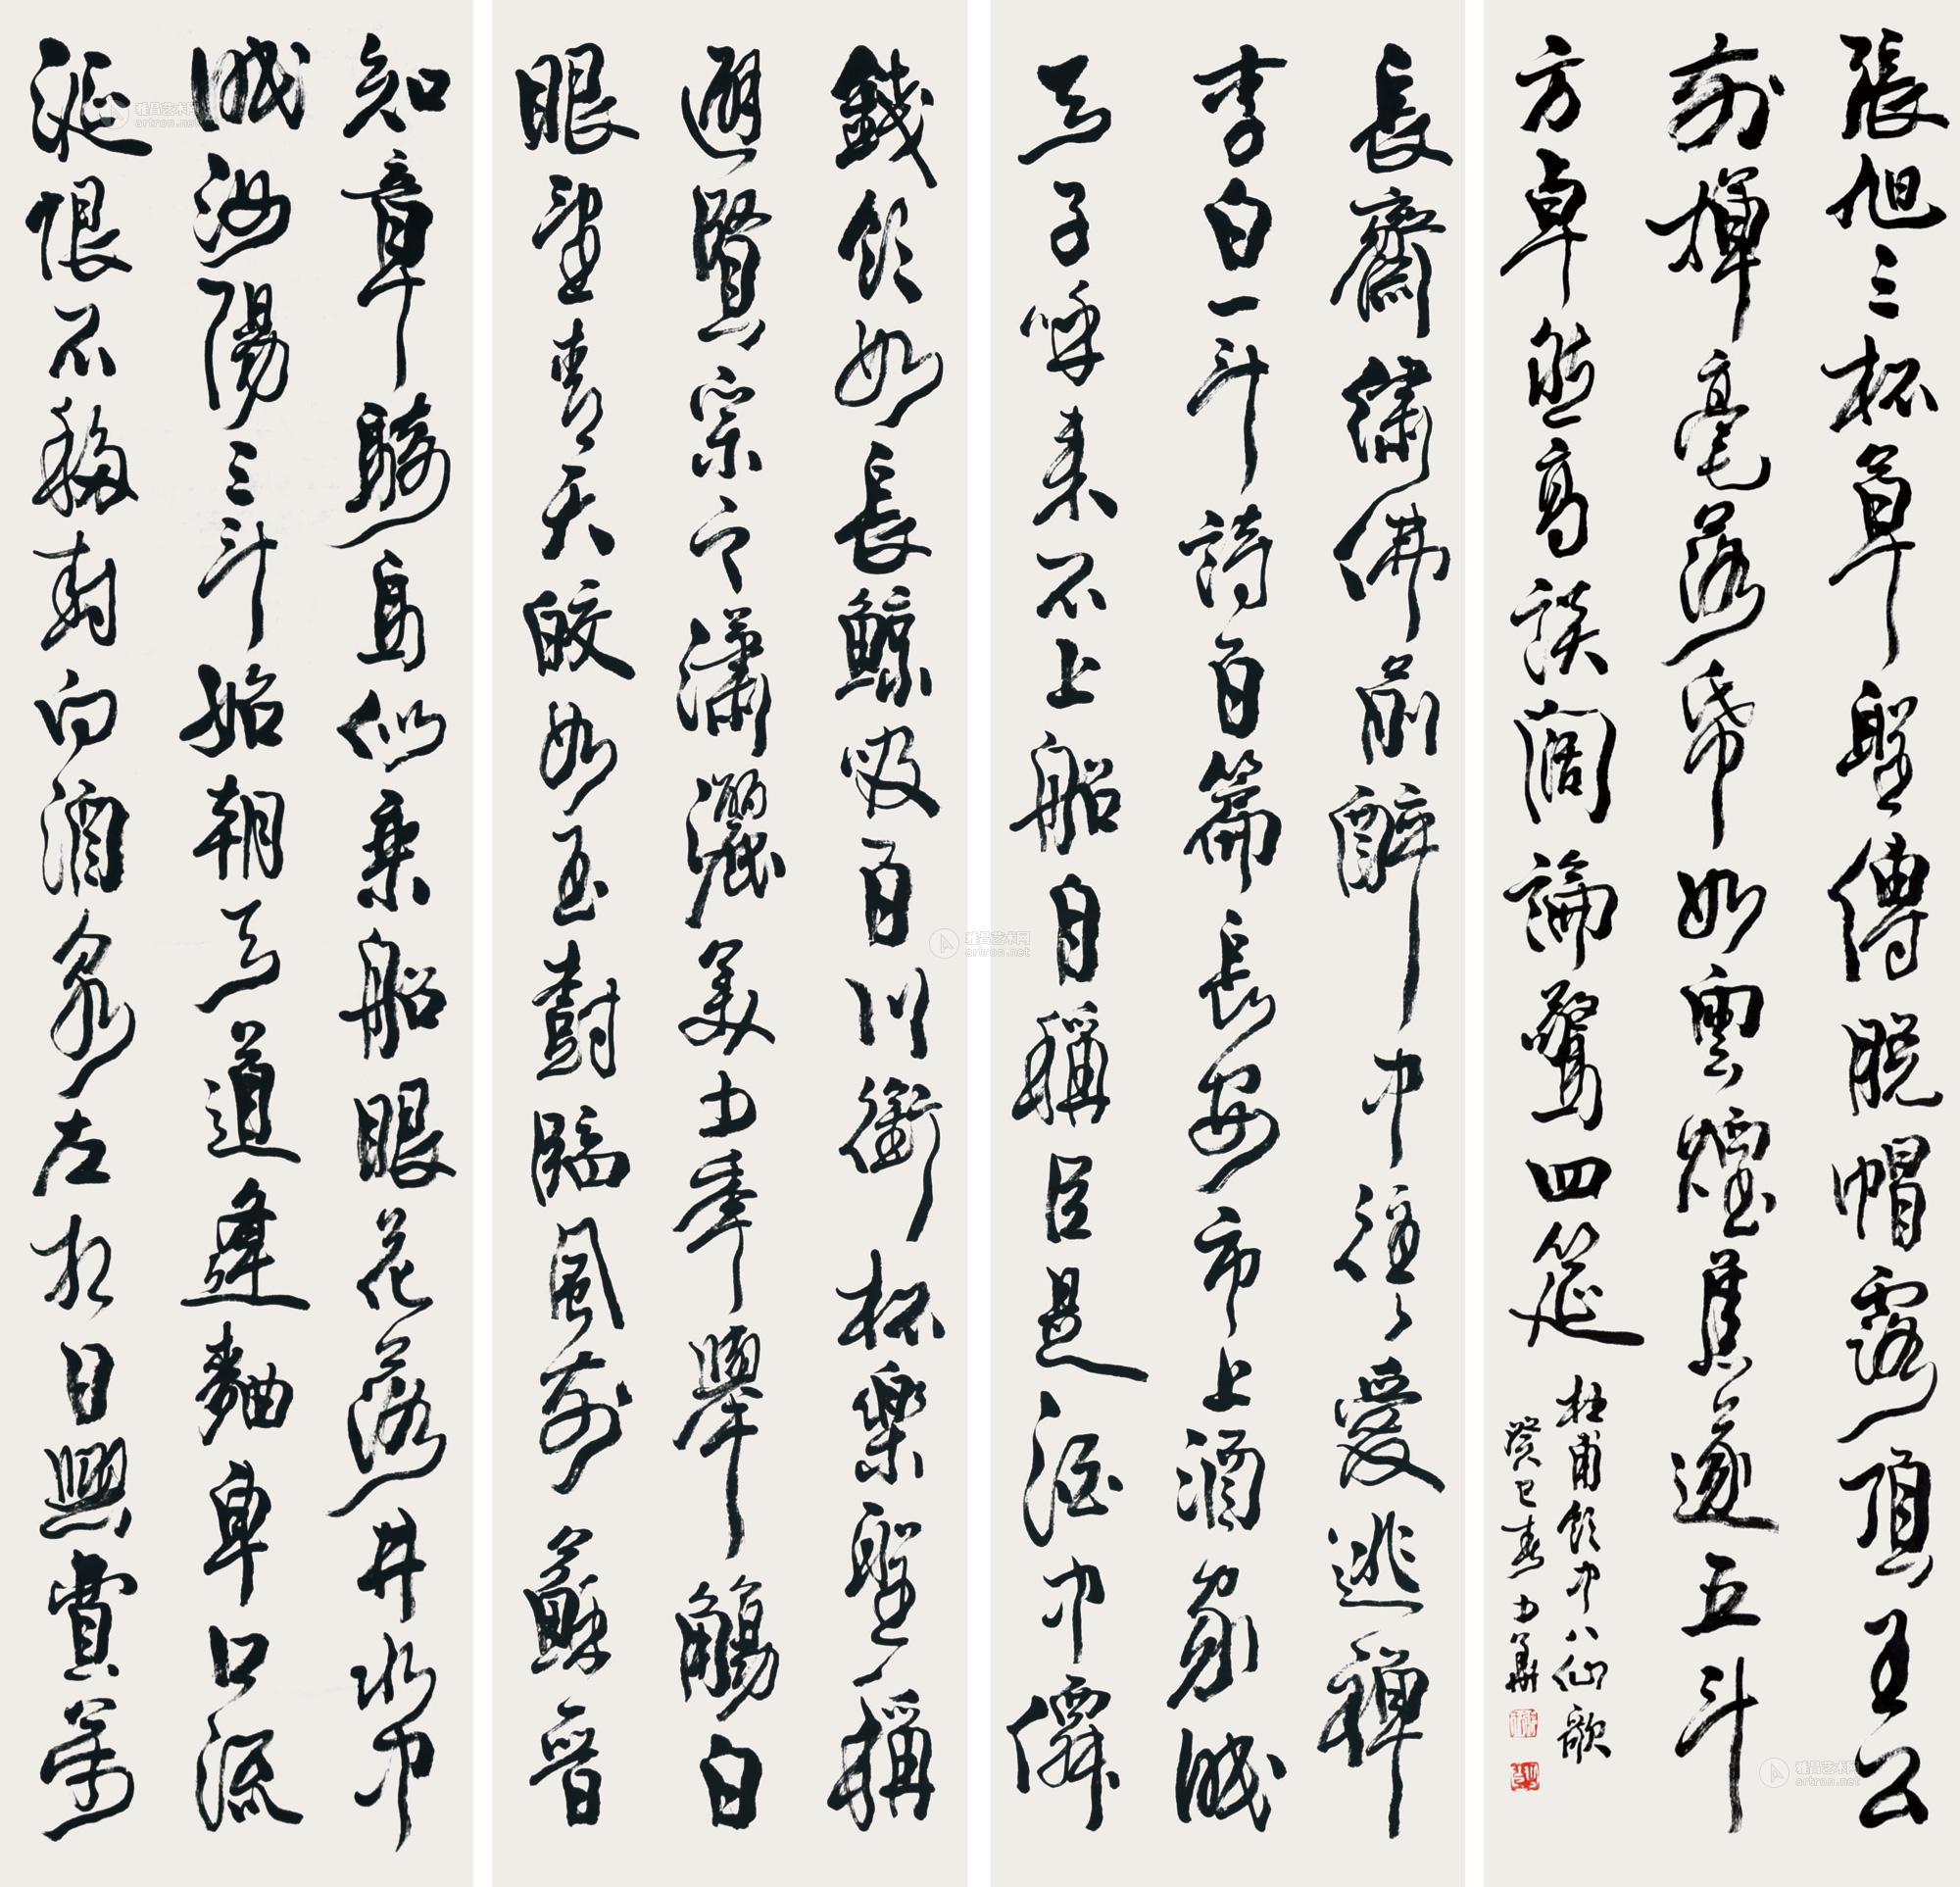 知章騎馬似乘船眼花落井水中
眠汝陽三斗始朝天道逢麴車口流
涎恨不移封向酒泉左相日興費萬
錢飲如長鯨吸百川銜杯樂聖稱
避賢宗之瀟灑美少年舉觴白
眼望青天皎如玉樹臨風前蘇晉
長齋繡佛前醉中往々愛逃禪
李白一斗詩百篇長安市上酒家眠
天子呼來不上船自稱臣是酒中僊
張旭三杯草聖傳脫帽露頂王公
前揮毫落帋如雲煙焦遂五斗
方卓然高談闊論驚四筵
杜甫飲中八仙歌
癸巳春少華
雅昌艺术网
artron.net